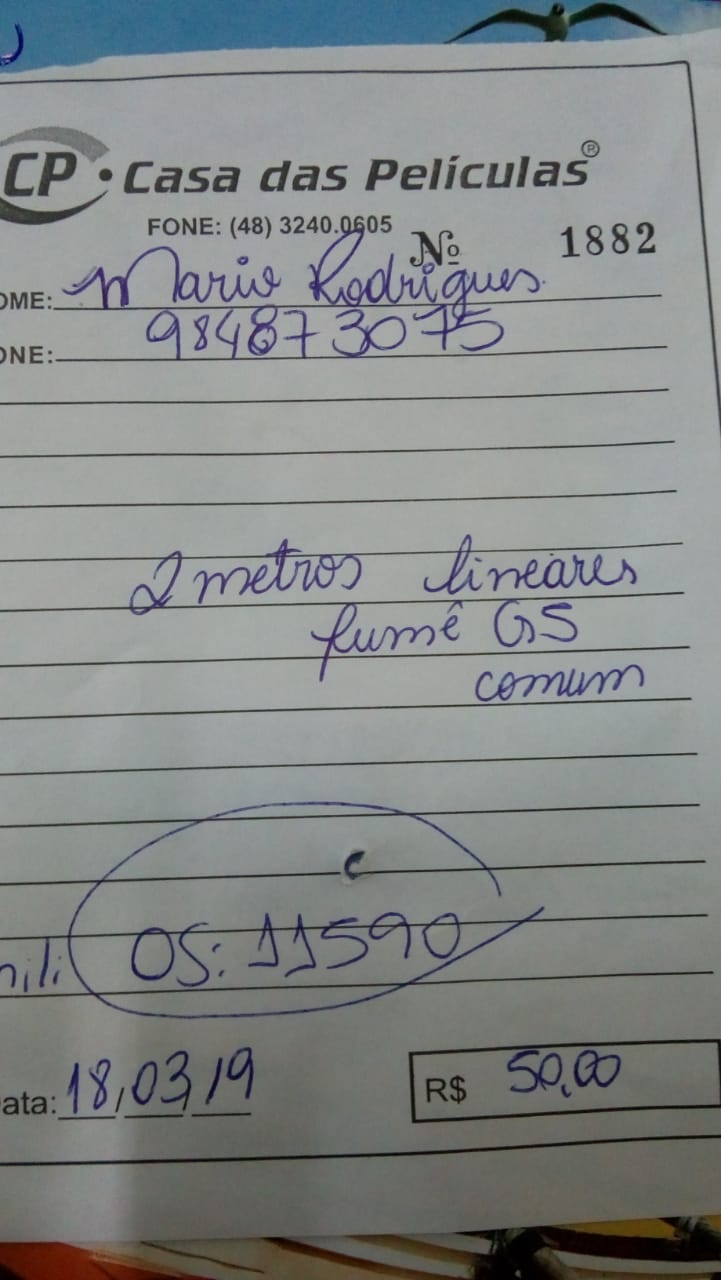 CP • Casa das Películas®
FONE: (48) 3240.0605
Nº 1882
OME: Mario Rodrigues
ONE: 984873075
2 metros lineares
fumê G5
comum
OS: 11590
ata: 18/03/19
R$ 50,00